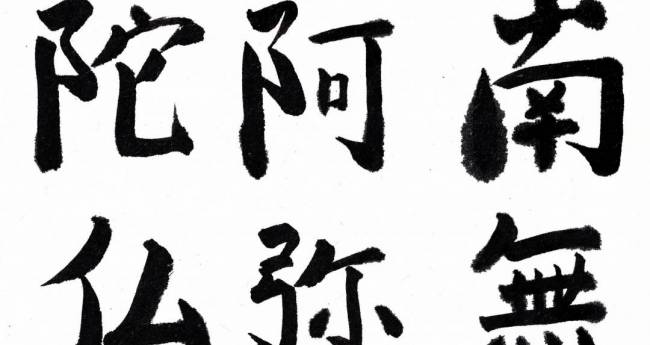 南無
阿弥
陀仏